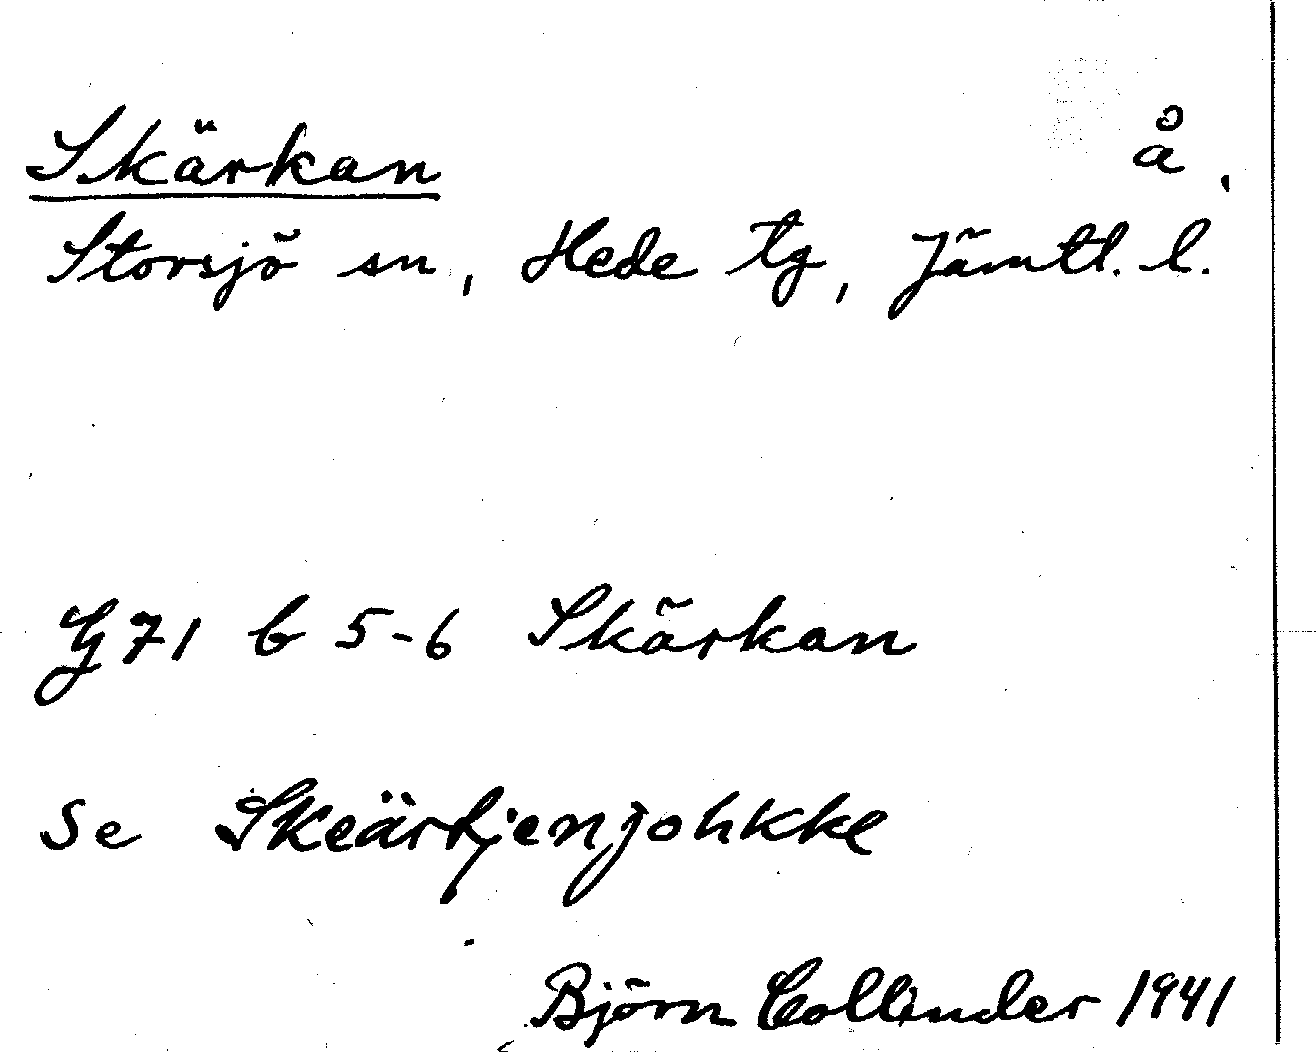 Skärkan å.
Storsjö sn, Hede tg, Jämtl. l.
G 71 b 5-6 Skärkan
Se Skeärkjenjohkke
Björn Collinder 1941